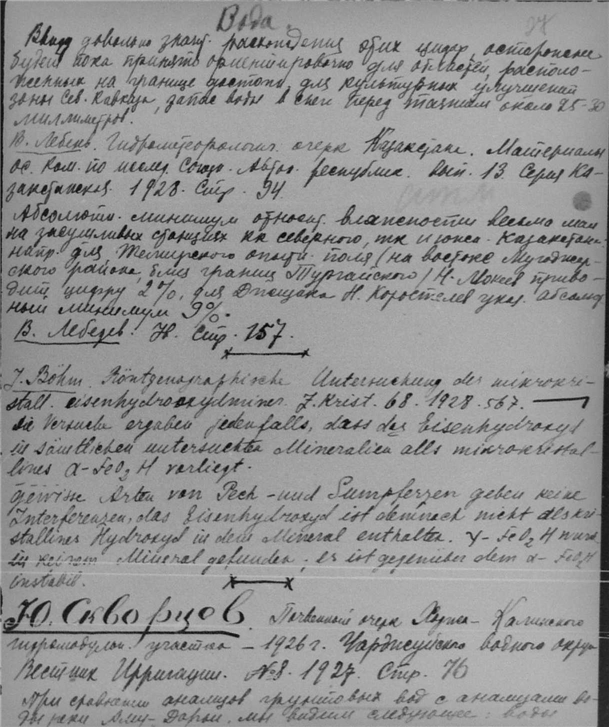 Вода.
Ввиду довольно значит. расхождения этих цифр, осторожнее
будет пока принять ориентировочно для областей, располо-
женных на границе доступн. для культурных улучшений
зоны Сев. Кавказа, запас воды в снеге перед таянием около 25-30
миллиметров.
В. Лебедев. Гидрометеорологич. очерк Казакстана. Материалы
ос. Ком. по исслед. Союзн. Автон. республик. Вып. 13 Серия Ка-
закстанская. 1928. Стр. 94.
Абсолютн. минимум относит. влажности весьма мал
на засушливых станциях как северного, так и южн. Казакстана
напр. для Темирского опытн. поля (на востоке Мугоджар-
ского района, близ границ Тургайского) Н. приво-
дит цифру 2%, для Н. Коростелев указ. абсолют-
ный минимум 9%.
В. Лебедев. Н. Стр. 157.
J. Böhm. Röntgenographische Untersuchung der mikrokri-
stall. eisenhydroxydminer. Z. Krist. 68. 1928. 567.
Die Versuche ergaben jedenfalls, dass das Eisenhydroxyd
in sämtlichen untersuchten Mineralien als mikrokristal-
lines α-FeO₂H vorliegt.
Gewisse Arten von Pech- und Sumpferzen geben keine
Interferenzen, das Eisenhydroxyd ist demnach nicht als kri-
stallines Hydroxyd in dem Mineral enthalten. γ-FeO₂H wurde
in keinem Mineral gefunden, es ist gegenüber dem α-FeO₂H
instabil.
Ю. Скворцов. Почвенный очерк
гидромодульн. участка – 1926 г. Чарджуйского водного округа
Вестник Ирригации. №8. 1927. Стр. 76
При сравнении анализов грунтовых вод с анализами во-
ды реки Аму-Дарьи, мы видим следующее: воды